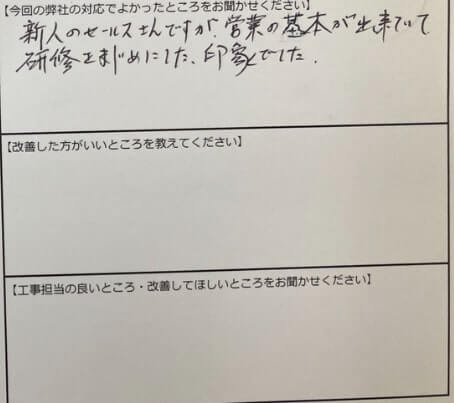 【今回の弊社の対応でよかったところをお聞かせください】
新人のセールスさんですが、営業の基本が出来ていて
研修をまじめにした、印象でした.
【改善した方がいいところを教えてください】
【工事担当の良いところ・改善してほしいところをお聞かせください】